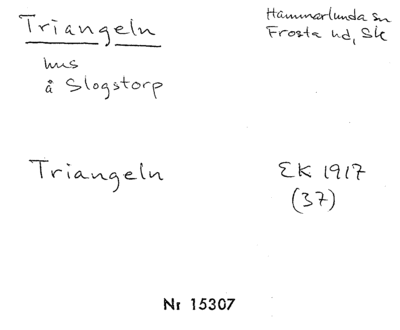 Triangeln
Hammarlunda sn
Frosta hd, Sk
hus
å Slogstorp
Triangeln
EK 1917
(37)
Nr 15307